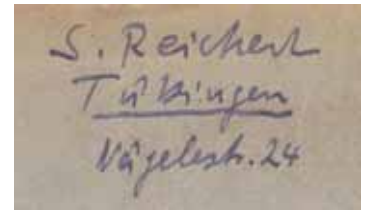 S. Reichert
Tübingen
Nägelestr. 24